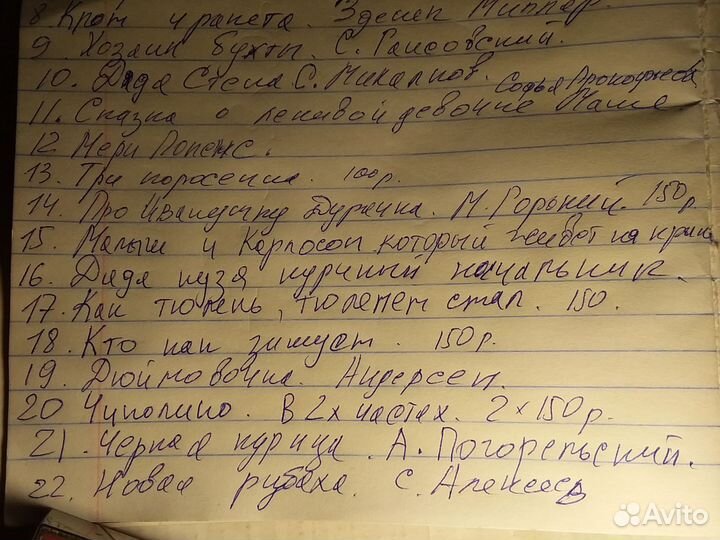 8. Крот и ракета. Зденек Миллер.
9. Хозяин бухты. С. Гансовский.
10. Дядя Степа С. Михалков.
11. Сказка о ленивой девочке Маше Софья Прокофьева
12 Мери Попенс.
13. Три поросенка. 100р.
14. Про Иванушку Дурачка. М. Горький. 150р
15. Малыш и Карлосон который живет на крыше
16. Дядя кузя куриный начальник.
17. Как тюлень, тюленем стал. 150.
18. Кто как зимует. 150р.
19. Дюймовочка. Андерсен.
20 Чиполино. В 2х частях. 2 х 150р.
21. Черная курица. А. Погорельский.
22. Новая рубаха. С. Алексеев
Avito